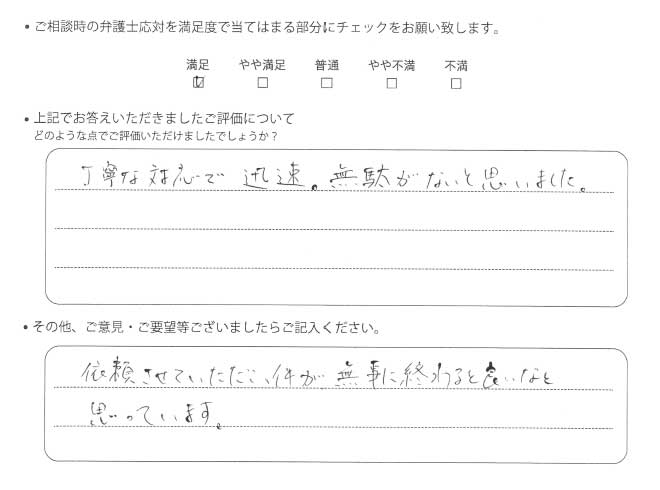 ・ご相談時の弁護士応対を満足度で当てはまる部分にチェックをお願い致します。
満足 やや満足 普通 やや不満 不満
☑ □ □ □ □
・上記でお答えいただきましたご評価について
どのような点でご評価いただけましたでしょうか？
丁寧な対応で 迅速。無駄がないと思いました。
・その他、ご意見・ご要望等ございましたらご記入ください。
依頼させていただい件が 無事に終わると良いなと
思っています。